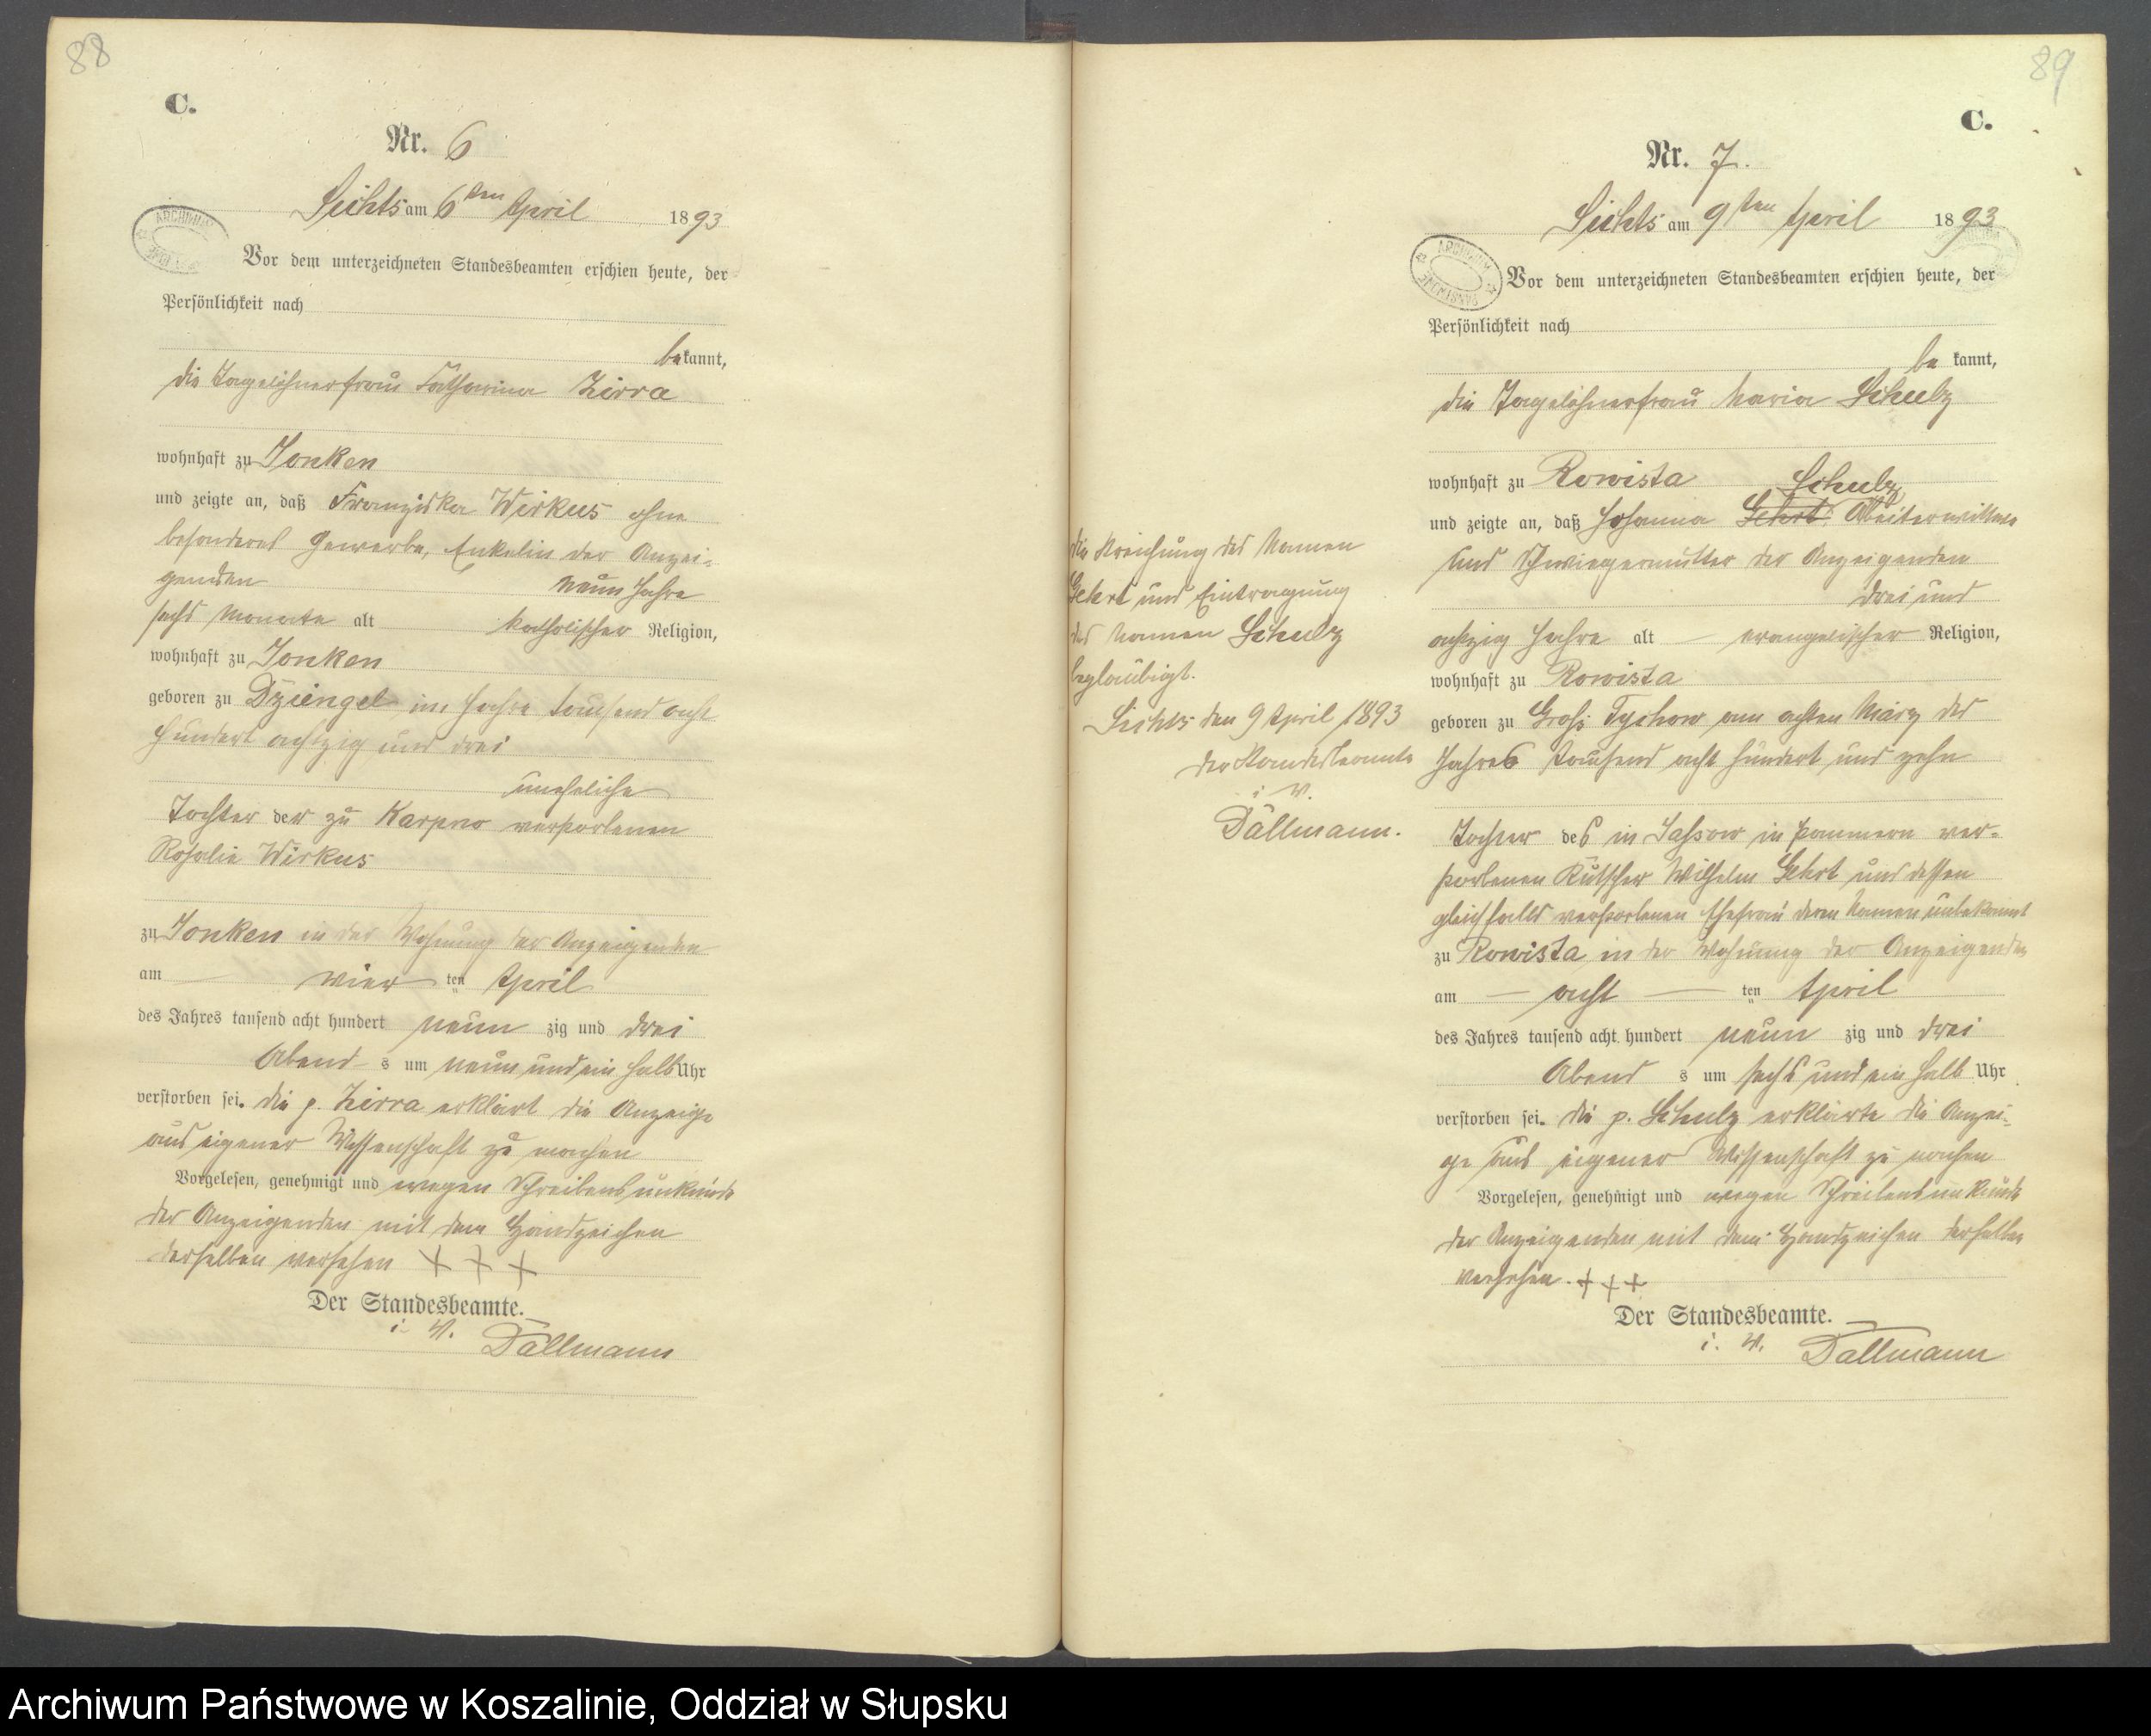 88
C.
Nr. 6
Lichts am 6ten April 1893
ARCHIWUM
Vor dem unterzeichneten Standesbeamten erschien heute, der
Persönlichkeit nach
bekannt,
die Tagelöhnerfrau Catharina Zirra
wohnhaft zu Jonken
und zeigte an, daß Franziska Wirkus ohne
besonderes Gewerbe, Enkelin der Anzei-
genden neun Jahre
sechs Monate alt katholischer Religion,
wohnhaft zu Jonken
geboren zu Dziengel im Jahre tausend acht
hundert achtzig und drei
uneheliche
Tochter der zu Karpno verstorbenen
Rosalie Wirkus
zu Jonken in der Wohnung der Anzeigenden
am vier ten April
des Jahres tausend acht hundert neun zig und drei
Abend s um neun und ein halb Uhr
verstorben sei. die p. Zirra erklärt die Anzeige
aus eigener Wissenschaft zu machen
Vorgelesen, genehmigt und wegen Schreibensunkunde
der Anzeigenden mit dem Handzeichen
derselben versehen + + +
Der Standesbeamte.
i. V. Dallmann
89
C.
Nr. 7.
Lichts am 9ten April 1893
ARCHIWUM PAŃSTWOWE
Vor dem unterzeichneten Standesbeamten erschien heute, der
Persönlichkeit nach
be kannt,
die Tagelöhnerfrau Maria Schulz
wohnhaft zu Rowista
Schulz
und zeigte an, daß Johanna Gehrt Arbeiterwittwe
und Schwiegermutter der Anzeigenden
drei und
achtzig Jahre alt evangelischer Religion,
wohnhaft zu Rowista
geboren zu Groß Tychow am achten März des
Jahres tausend acht hundert und zehn
Tochter des in Jassow in Pommern ver-
storbenen Kutscher Wilhelm Gehrt und dessen
gleichfalls verstorbenen Ehefrau deren Namen unbekannt
zu Rowista in der Wohnung der Anzeigenden
am acht ten April
des Jahres tausend acht hundert neun zig und drei
Abend s um sechs und ein halb Uhr
verstorben sei. die p. Schulz erklärte die Anzei-
ge aus eigener Wissenschaft zu machen
Vorgelesen, genehmigt und wegen Schreibensunkunde
der Anzeigenden mit dem Handzeichen derselben
versehen. + + +
Der Standesbeamte.
i. V. Dallmann
die Streichung des Namen
Gehrt und Eintragung
des Namen Schulz
beglaubigt.
Lichts den 9 April 1893
der Standesbeamte
i. V.
Dallmann.
Archiwum Państwowe w Koszalinie, Oddział w Słupsku